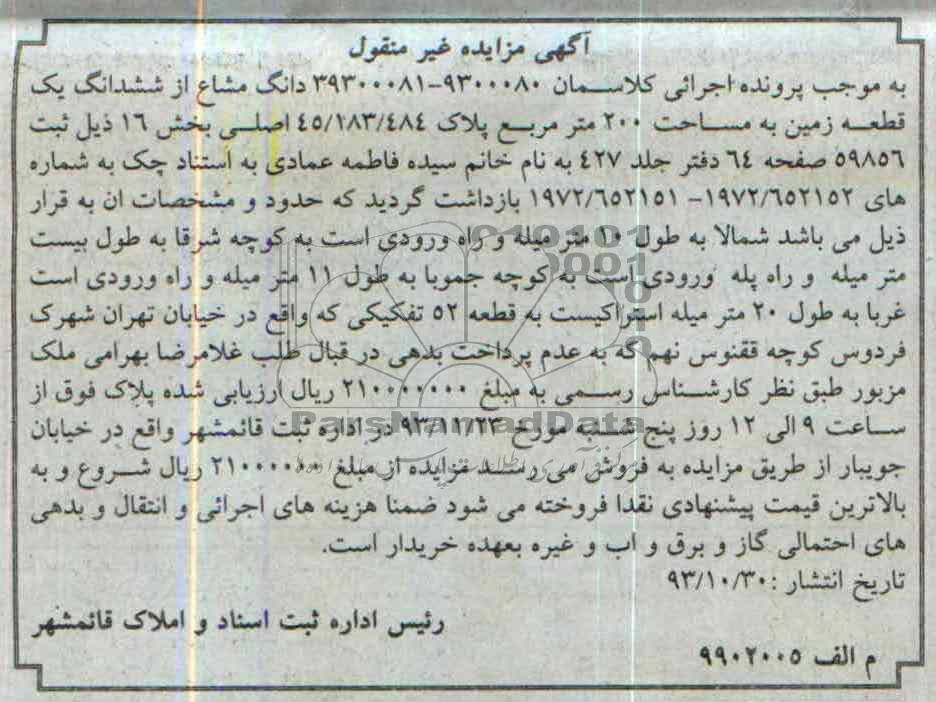 آگهی مزایده غیر منقول
به موجب پرونده اجرائی کلاسمان ۹۳۰۰۰۸۰-۳۹۳۰۰۰۸۱ دانگ مشاع از ششدانگ یک
قطعه زمین به مساحت ۲۰۰ متر مربع پلاک ۴۵/۱۸۳/۴۸۴ اصلی بخش ۱۶ ذیل ثبت
۵۹۸۵۶ صفحه ۶۴ دفتر جلد ۴۲۷ به نام خانم سیده فاطمه عمادی به استناد چک به شماره
های ۱۹۷۲/۶۵۲۱۵۲- ۱۹۷۲/۶۵۲۱۵۱ بازداشت گردید که حدود و مشخصات ان به قرار
ذیل می باشد شمالا به طول ۱۰ متر میله و راه ورودی است به کوچه شرقا به طول بیست
متر میله و راه پله ورودی است به کوچه جموبا به طول ۱۱ متر میله و راه ورودی است
غربا به طول ۲۰ متر میله استراکیست به قطعه ۵۲ تفکیکی که واقع در خیابان تهران شهرک
فردوس کوچه ققنوس نهم که به عدم پرداخت بدهی در قبال طلب غلامرضا بهرامی ملک
مزبور طبق نظر کارشناس رسمی به مبلغ ۲۱۰۰۰۰۰۰۰ ریال ارزیابی شده پلاک فوق از
ساعت ۹ الی ۱۲ روز پنج شنبه مورخ ۹۳/۱۲/۲۳ در اداره ثبت قائمشهر واقع در خیابان
جویبار از طریق مزایده به فروش می رسد مزایده از مبلغ ۲۱۰۰۰۰۰۰۰ ریال شروع و به
بالاترین قیمت پیشنهادی نقدا فروخته می شود ضمنا هزینه های اجرائی و انتقال و بدهی
های احتمالی گاز و برق و اب و غیره بعهده خریدار است.
تاریخ انتشار :۹۳/۱۰/۳۰
رئیس اداره ثبت اسناد و املاک قائمشهر
م الف ۹۹۰۲۰۰۵
ParsNamadData